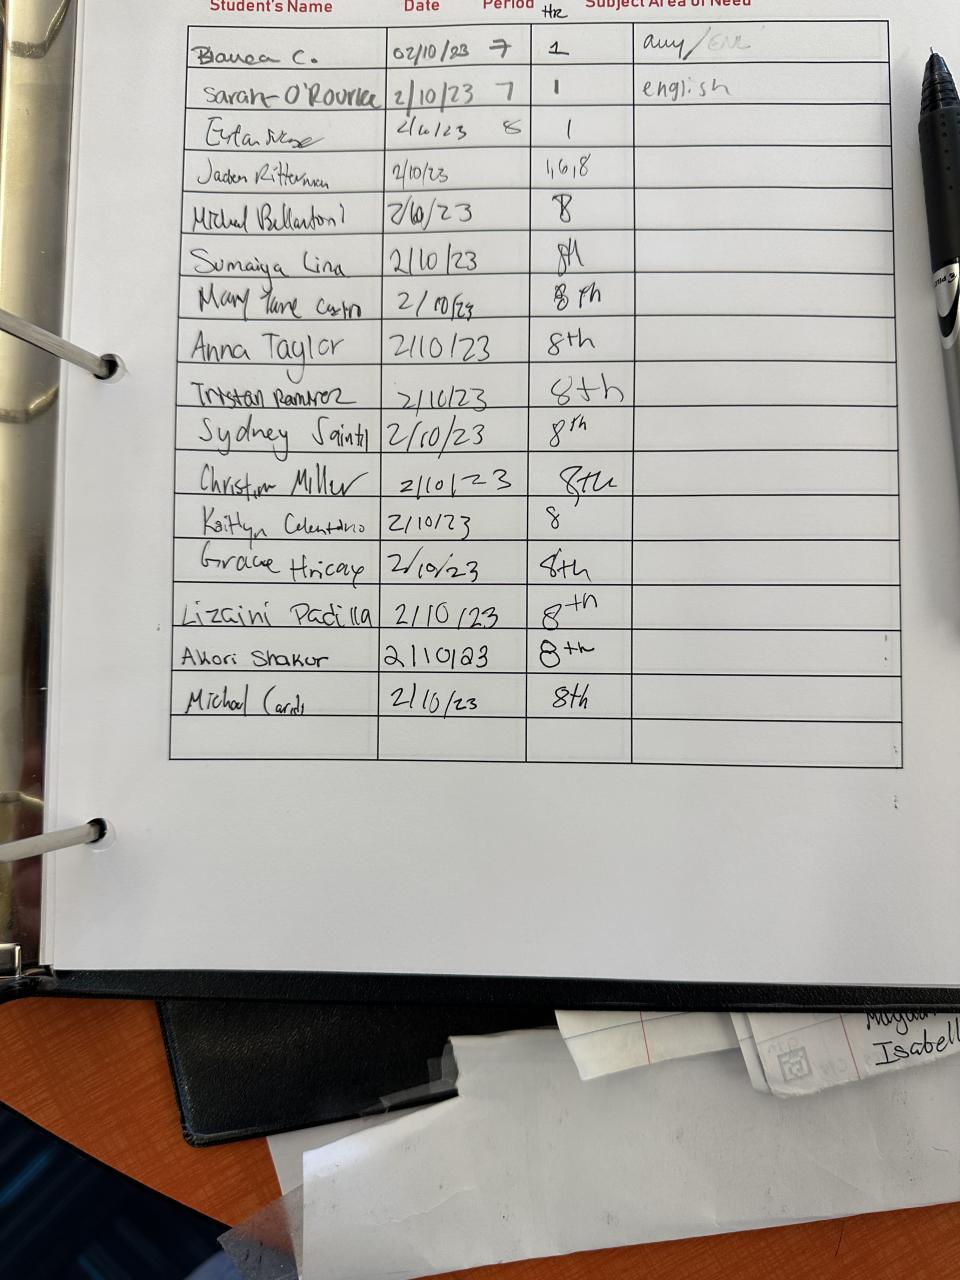 Student's Name Date Period Hr Subject Area of Need
Bianca C. 02/10/23 7 1 any/ENL
Sarah O'Rourke 2/10/23 7 1 english
2/10/23 8 1
Jaden Ritterman 2/10/23 1,6,8
Michael Bellantoni 2/10/23 8
Sumaiya Lina 2/10/23 8th
Mary Jane Castro 2/10/23 8th
Anna Taylor 2/10/23 8th
Tristan Ramirez 2/10/23 8th
Sydney Saintil 2/10/23 8th
Christian Miller 2/10/23 8th
Kaitlyn Celentano 2/10/23 8
Grace Hricay 2/10/23 8th
Lizaini Padilla 2/10/23 8th
Akori Shakur 2/10/23 8th
Michael 2/10/23 8th
Isabell